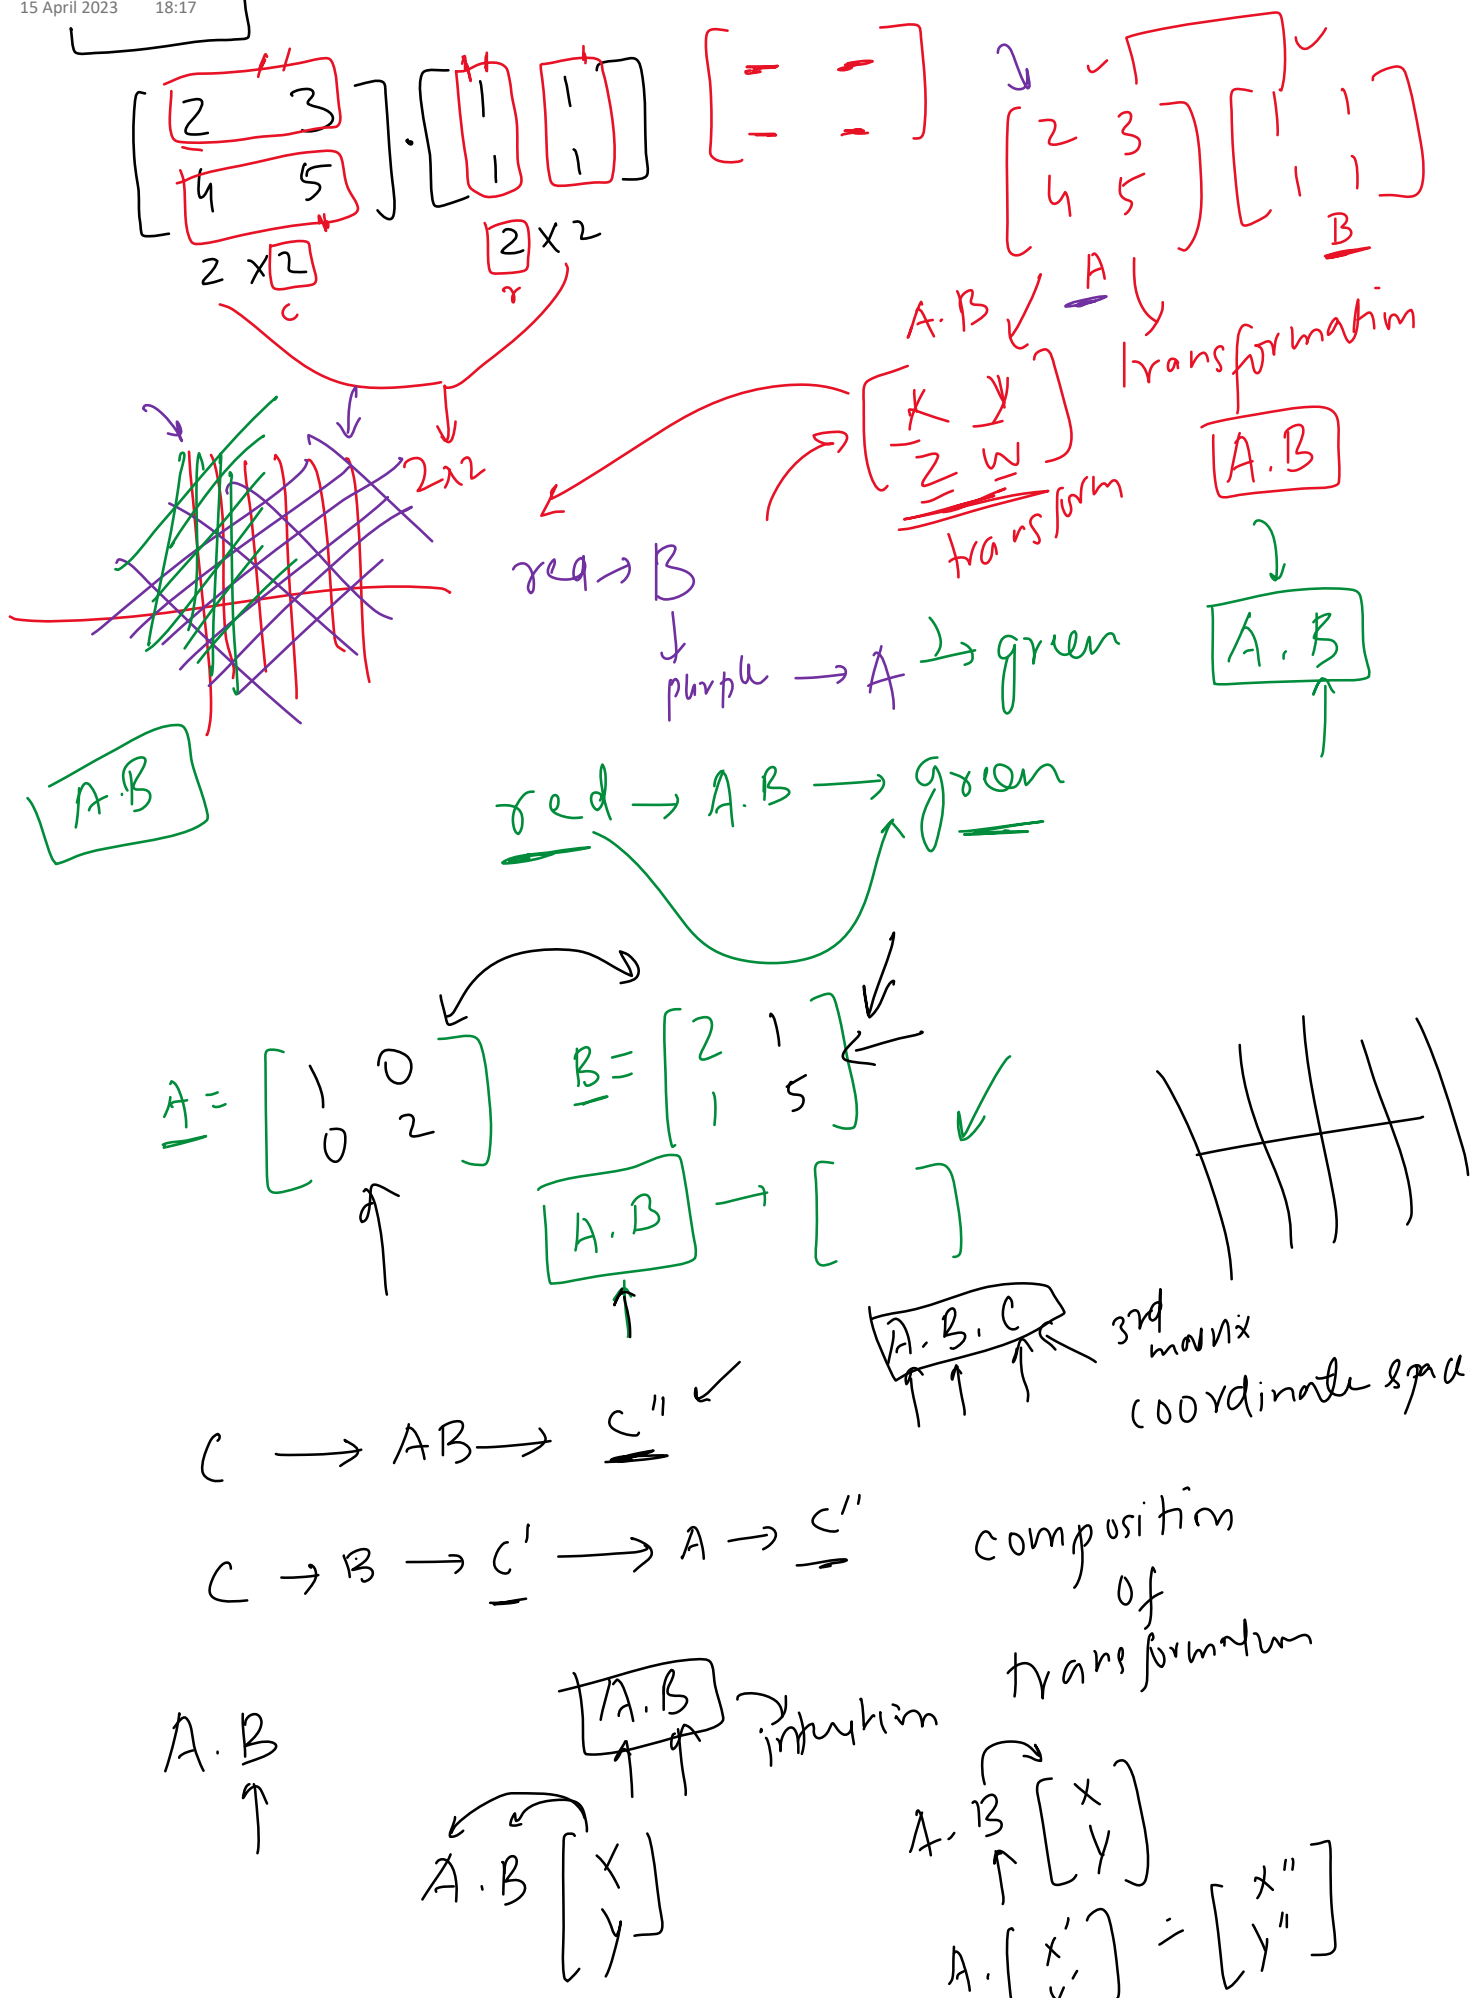 15 April 2023 18:17
[ 2 3 ] . [ 1 1 ] [ - - ] [ 2 3 ] [ 1 1 ]
[ 4 5 ] [ 1 1 ] [ - - ] [ 4 5 ] [ 1 1 ]
2 x 2 2 x 2 A B
c r A.B transformation
[ x y ]
[ z w ] A.B
2x2 transform
red → B
purple → A → green A.B
A.B red → A.B → green
A = [ 1 0 ] B = [ 2 1 ]
[ 0 2 ] [ 1 5 ]
A.B → [ ]
A.B.C 3rd matrix
coordinate space
C → AB → C''
C → B → C' → A → C'' composition
of
transformation
A.B A.B intuition
A.B [ x ] A.B [ x ]
[ y ] [ y ]
A. [ x' ] = [ x'' ]
[ y' ] [ y'' ]